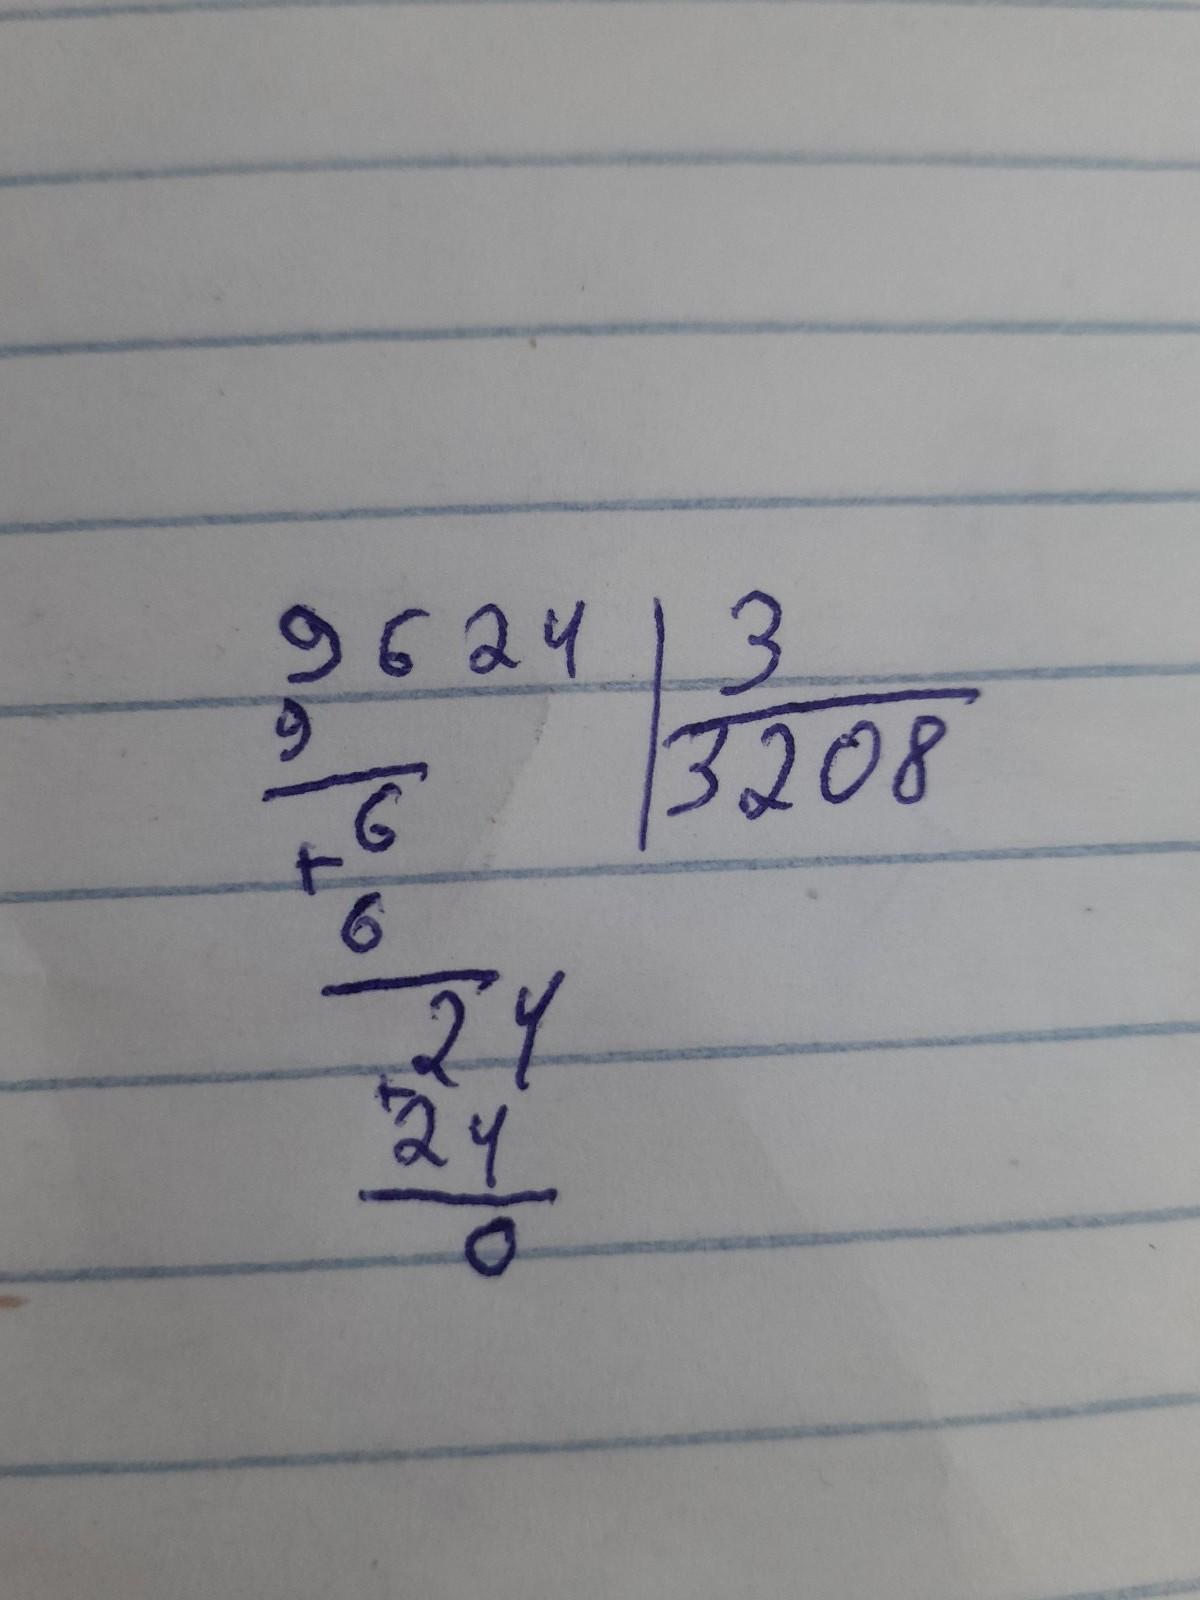 9624 | 3
9 | 3208
6
+
6
24
+
24
0